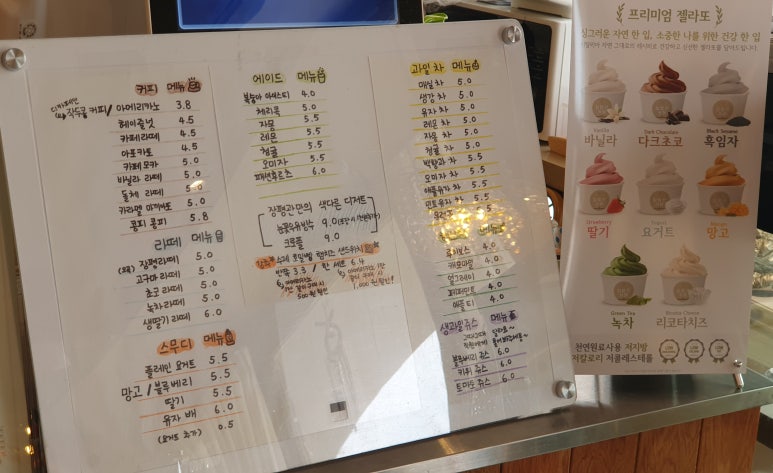 커피 메뉴
디카페인
작두콩 커피/아메리카노 3.8
헤이즐넛 4.5
카페라떼 4.5
아포카토 4.5
카페모카 5.0
바닐라 라떼 5.0
돌체 라떼 5.0
카라멜 마끼아또 5.0
콩피 콩피 5.8
라떼 메뉴
장평라떼 5.0
고구마라떼 5.0
초코라떼 5.0
녹차라떼 5.0
생딸기라떼 6.0
스무디 메뉴
플레인 요거트 5.5
망고/블루베리 5.5
딸기 5.5
유자 배 6.0
(요거트 추가) 0.5
에이드 메뉴
복숭아 아이스티 4.0
체리콕 5.0
자몽 5.5
레몬 5.5
청귤 5.5
오미자 5.5
패션후르츠 6.0
장평란만의 색다른 디저트
눈꽃우유빙수 9.0
크로플 9.0
수제 호밀빵 햄치즈 샌드위치
반쪽 3.3 / 한 세트 6.4
아메리카노
같이 구매 시
500원 할인
아메리카노 1잔
같이 구매 시
1,000원 할인!
과일차 메뉴
매실차 5.0
생강차 5.0
유자차 5.0
레몬차 5.0
자몽차 5.0
청귤차 5.0
모과차 5.0
오미자차 5.5
애플유자차 5.5
민트유자차 5.5
루이보스 4.0
캐모마일 4.0
얼그레이 4.0
페퍼민트 4.0
애플티 4.0
생과일쥬스 메뉴
블루베리 쥬스 6.0
키위 쥬스 6.0
토마토 쥬스 6.0
프리미엄 젤라또
싱그러운 자연 한 입, 소중한 나를 위한 건강 한 입
Vanilla
바닐라
Dark Chocolate
다크초코
Black Sesame
흑임자
Strawberry
딸기
Yogurt
요거트
Mango
망고
Green Tea
녹차
Ricotta Cheese
리코타치즈
천연원료사용 저지방
저칼로리 저콜레스테롤